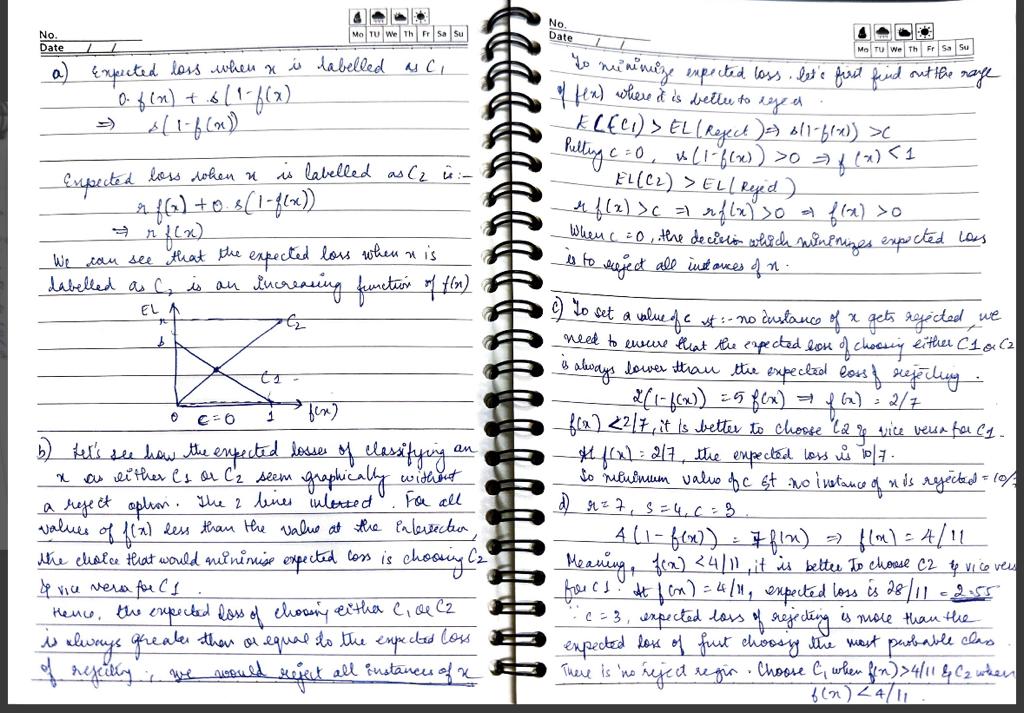 No.
Date / /
Mo TU We Th Fr Sa Su
a) Expected loss when x is labelled as C1
0. f(x) + s(1-f(x)
⇒ s(1-f(x))
Expected loss when x is labelled as C2 is:-
r f(x) + 0. s(1-f(x))
⇒ r f(x)
We can see that the expected loss when x is
labelled as C2 is an increasing function of f(x)
EL
r
C2
s
C1
0 c=0 1 f(x)
b) Let's see how the expected losses of classifying an
x as either C1 or C2 seem graphically without
a reject option. The 2 lines intersect. For all
values of f(x) less than the value at the intersection,
the choice that would minimise expected loss is choosing C2
& vice versa for C1.
Hence, the expected loss of choosing either C1 or C2
is always greater than or equal to the expected loss
of rejecting ∴ we would reject all instances of x
No.
Date / /
Mo TU We Th Fr Sa Su
To minimize expected loss. let's first find out the range
of f(x) where it is better to reject.
EL(C1) > EL(Reject) ⇒ s(1-f(x)) > c
Putting c = 0, s(1-f(x)) > 0 ⇒ f(x) < 1
EL(C2) > EL(Reject)
r f(x) > c ⇒ r f(x) > 0 ⇒ f(x) > 0
When c = 0, the decision which minimizes expected loss
is to reject all instances of x.
c) To set a value of c st :- no instance of x gets rejected, we
need to ensure that the expected loss of choosing either C1 or C2
is always lower than the expected loss of rejecting.
2(1-f(x)) = 5 f(x) ⇒ f(x) = 2/7
f(x) < 2/7, it is better to choose C2 & vice versa for C1.
At f(x) = 2/7, the expected loss is 10/7.
So minimum value of c st no instance of x is rejected = 10/7
d) r = 7, s = 4, c = 3.
4(1-f(x)) = 7 f(x) ⇒ f(x) = 4/11
Meaning, f(x) < 4/11, it is better to choose C2 & vice vers
for C1. At f(x) = 4/11, expected loss is 28/11 = 2.55
∵ c = 3, expected loss of rejecting is more than the
expected loss of just choosing the most probable class
There is no reject region. Choose C1 when f(x) > 4/11 & C2 when
f(x) < 4/11.